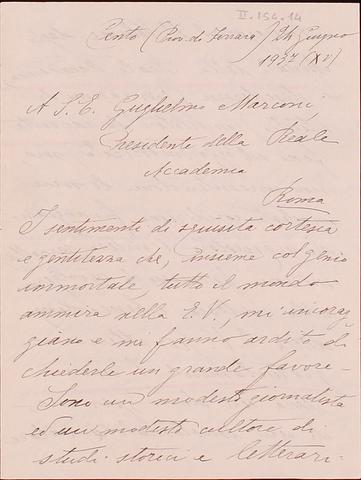 II-154.14
Cento (Prov. di Ferrara) 24 Giugno
1937 (XV)
A S. E. Guglielmo Marconi
Presidente della Reale
Accademia
Roma
I sentimenti di squisita cortesia
e gentilezza che, insieme col genio
immortale, tutto il mondo
ammira nella E. V., mi incorag-
giano e mi fanno ardito di
chiederle un grande favore -
Sono un modesto giornalista
ed un modesto cultore di
studi storici e letterari -